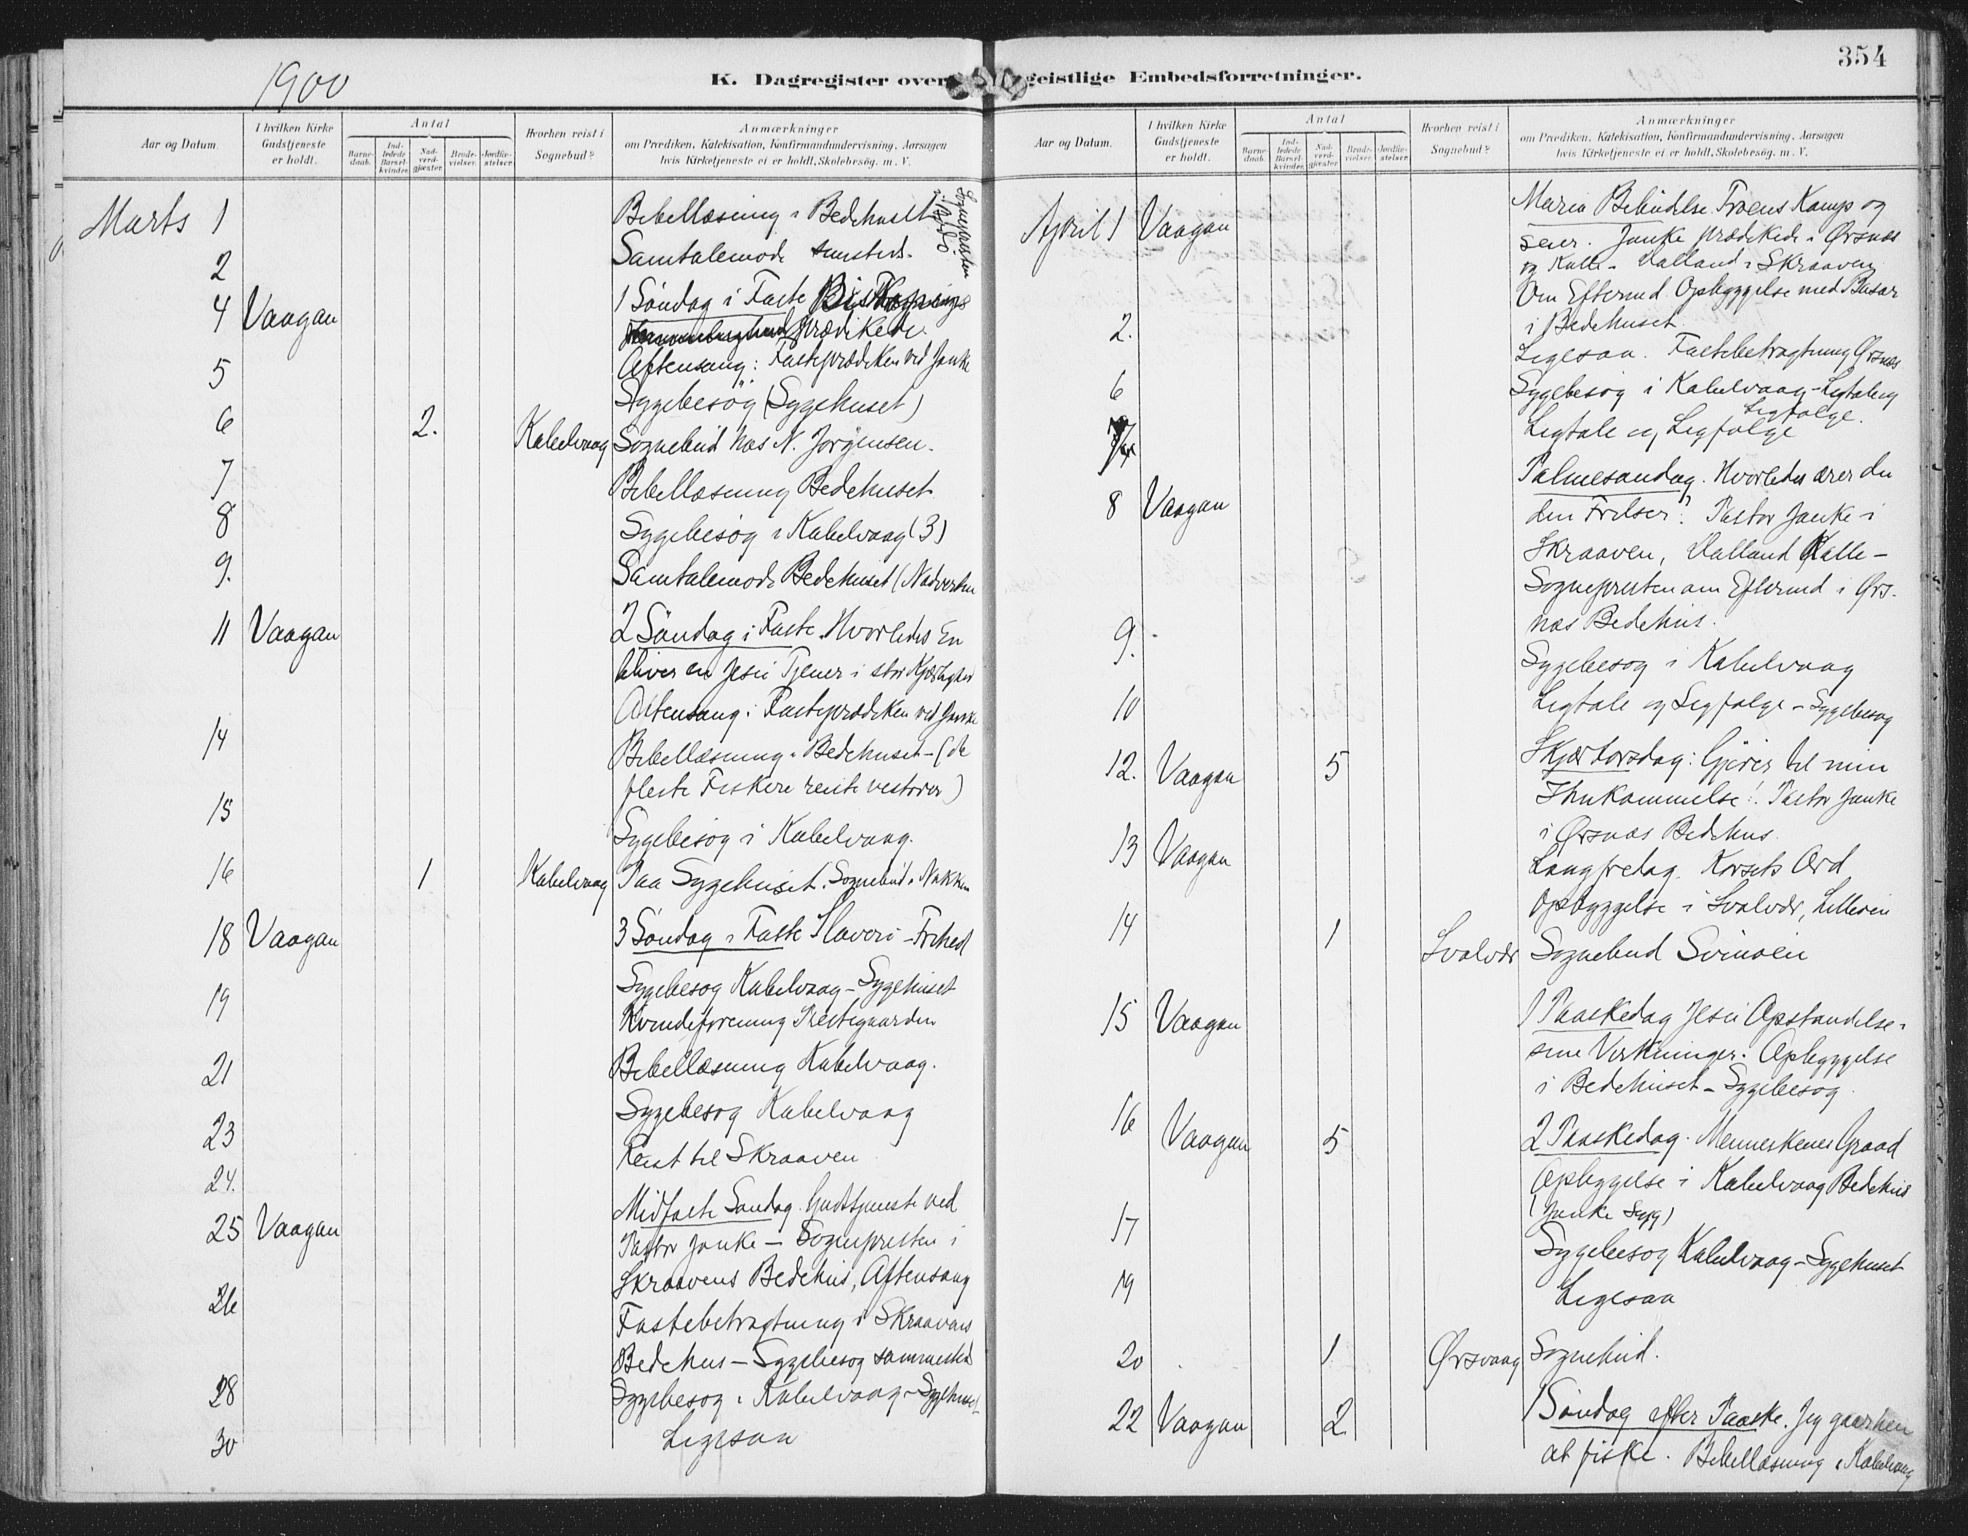 1900
K. Dagregister over geistlige Embedsforretninger.
354
Aar og Datum.
I hvilken Kirke Gudstjeneste er holdt.
Antal
Barne-daab.
Ind-ledede Barsel-kvinder.
Nad-verd-gjæster.
Brude-vielser.
Jordfæ-stelser.
Hvorhen reist i Sognebud?
Anmærkninger
om Prædiken, Katekisation, Konfirmandundervisning, Aarsagen
hvis Kirketjeneste ei er holdt, Skolebesøg. m. V.
Marts 1 Bibellæsning i Bedehuset Sognepresten i Bodö
2 Samtalemöde sammesteds.
4 Vaagan 1 Söndag i Faste
prædikede
Aftensang: Fasteprædiken ved Janke
5 Sygebesög (Sygehuset)
6 2. Kabelvaag Sognebud hos N. Jorgensen.
7 Bibellæsning Bedehuset
8 Sygebesög i Kabelvaag (3)
9. Samtalemöde Bedehuset (Nadverden
11 Vaagan 2 Söndag i Faste. Hvorledes En
bliver en Jesu Tjener i stor Kjærlighed
Aftensang: Fasteprædiken ved Janke
14 Bibellæsning i Bedehuset - (de
fleste Fiskere reiste vestover)
15 Sygebesög i Kabelvaag.
16 1 Kabelvaag Paa Sygehuset. Sognebud i
18 Vaagan 3 Söndag i Faste Slaveri - Frihed
19 Sygebesog Kabelvaag - Sygehuset
Kvindeforening Prestegaarden
21 Bibellæsning Kabelvaag.
23 Sygebesog Kabelvaag
24. Reist til Skraaven
25 Vaagan Midfaste Sondag. Gudstjeneste ved
Pastor Janke - Sognepresten i
Skraavens Bedehus, Aftensang
26 Fastebetragtning i Skraavens
Bedehus - Sygebesog sammested
28 Sygebesog i Kabelvaag - Sygehuset
30 Ligesaa
Aar og Datum.
I hvilken Kirke Gudstjeneste er holdt.
Antal
Barne-daab.
Ind-ledede Barsel-kvinder.
Nad-verd-gjæster.
Brude-vielser.
Jordfæ-stelser.
Hvorhen reist i Sognebud?
Anmærkninger
om Prædiken, Katekisation, Konfirmandundervisning, Aarsagen
hvis Kirketjeneste ei er holdt, Skolebesøg. m. V.
April 1 Vaagan Maria Bebudelse. Troens Kamp og
seier. Janke prædikede i Ørsnæs
og Kalle - Valland i Skraaven
Om Eftermd. Opbyggelse med Basar
i Bedehuset
2. Ligesaa. Fastebetragtning Ørsnæs
6 Sygebesog i Kabelvaag - Ligtale og Ligfølge.
7/4 Ligtale og Ligfølge
8 Vaagan Palmesøndag. Hvorledes ærer du
din Frelser? Pastor Janke i
Skraaven, Valland Kalle -
Sognepresten om Eftermd i Ørs-
næs Bedehus.
9. Sygebesog i Kabelvaag
10 Ligtale og Ligfølge - Sygebesog
12. Vaagan 5 Skjærtorsdag: Gjører det til min
Ihukommelse! Pastor Janke
i Ørsnæs Bedehus.
13 Vaagan Langfredag. Korsets Ord
Opbyggelse i Svolvær,
14 1 Svolvær Sognebud Svinøen
15 Vaagan 1 Paaskedag Jesu Opstandelse i
sine Virkninger. Opbyggelse
i Bedehuset - Sygebesog.
16 Vaagan 5 2 Paaskedag. Menneskenes Graad
Opbyggelse i Kabelvaag Bedehus
(Janke syg)
17 Sygebesog Kabelvaag - Sygehuset
19 Ligesaa
20 1 Ørsvaag Sognebud.
22 Vaagan 2 1 Söndag efter Paaske. Jeg gaar hen
at fiske. Bibellæsning i Kabelvaag